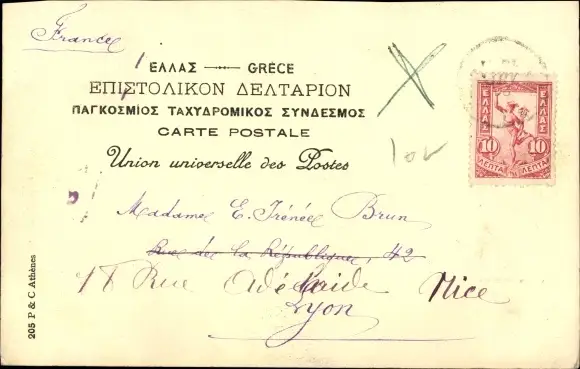 France
ΕΛΛΑΣ — GRÈCE
ΕΠΙΣΤΟΛΙΚΟΝ ΔΕΛΤΑΡΙΟΝ
ΠΑΓΚΟΣΜΙΟΣ ΤΑΧΥΔΡΟΜΙΚΟΣ ΣΥΝΔΕΣΜΟΣ
CARTE POSTALE
Union universelle des Postes
ΕΛΛΑΣ ΕΛΛΑΣ
10 10
ΛΕΠΤΑ ΛΕΠΤΑ
Madame E. Irénée Brun
Rue de la République, 42
18 Rue Adélaide Nice
Lyon
205 P & C Athènes